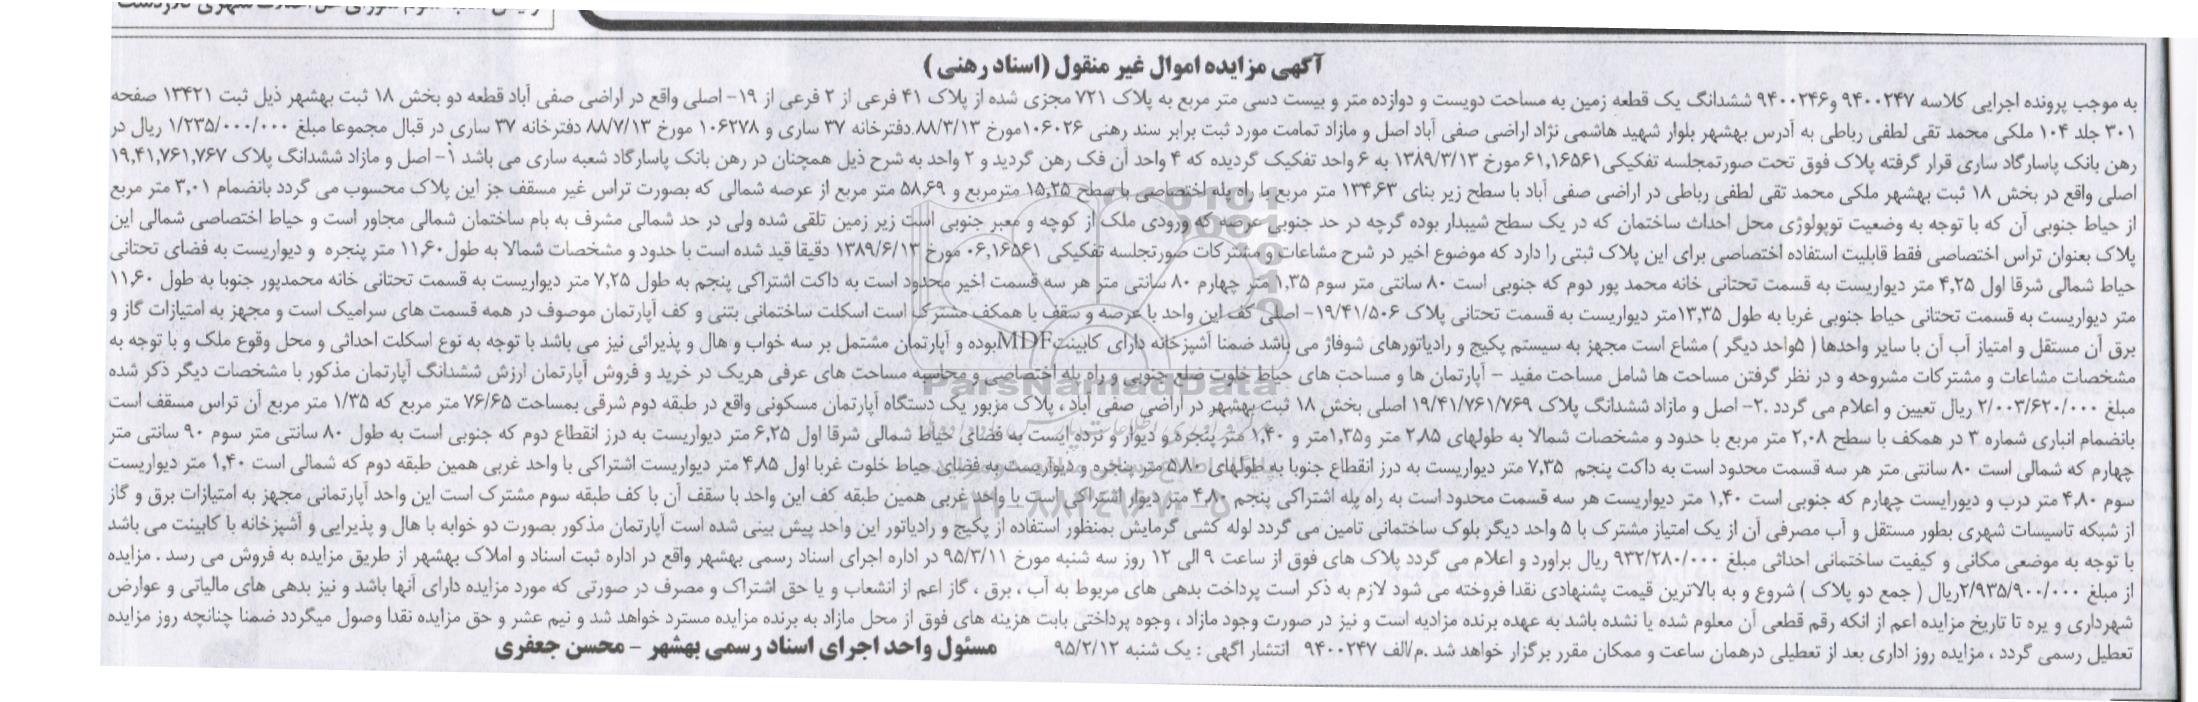 آگهی مزایده اموال غیر منقول (اسناد رهنی )
به موجب پرونده اجرایی کلاسه ۹۴۰۰۲۴۷ و۹۴۰۰۲۴۶ ششدانگ یک قطعه زمین به مساحت دویست و دوازده متر و بیست دسی متر مربع به پلاک ۷۲۱ مجزی شده از پلاک ۴۱ فرعی از ۲ فرعی از ۱۹- اصلی واقع در اراضی صفی آباد قطعه دو بخش ۱۸ ثبت بهشهر ذیل ثبت ۱۳۴۲۱ صفحه
۳۰۱ جلد ۱۰۴ ملکی محمد تقی لطفی رباطی به آدرس بهشهر بلوار شهید هاشمی نژاد اراضی صفی آباد اصل و مازاد تمامت مورد ثبت برابر سند رهنی ۱۰۶۰۲۶مورخ ۸۸/۳/۱۳.دفترخانه ۳۷ ساری و ۱۰۶۲۷۸ مورخ ۸۸/۷/۱۳ دفترخانه ۳۷ ساری در قبال مجموعا مبلغ ۱/۲۳۵/۰۰۰/۰۰۰ ریال در
رهن بانک پاسارگاد ساری قرار گرفته پلاک فوق تحت صورتمجلسه تفکیکی۶۱,۱۶۵۶۱ مورخ ۱۳۸۹/۳/۱۳ به ۶ واحد تفکیک گردیده که ۴ واحد آن فک رهن گردید و ۲ واحد به شرح ذیل همچنان در رهن بانک پاسارگاد شعبه ساری می باشد ۱- اصل و مازاد ششدانگ پلاک ۱۹,۴۱,۷۶۱,۷۶۷
اصلی واقع در بخش ۱۸ ثبت بهشهر ملکی محمد تقی لطفی رباطی در اراضی صفی آباد با سطح زیر بنای ۱۳۴,۶۳ متر مربع با راه پله اختصاصی با سطح ۱۵,۲۵ مترمربع و ۵۸,۶۹ متر مربع از عرصه شمالی که بصورت تراس غیر مسقف جز این پلاک محسوب می گردد بانضمام ۳,۰۱ متر مربع
از حیاط جنوبی آن که با توجه به وضعیت توپولوژی محل احداث ساختمان که در یک سطح شیبدار بوده گرچه در حد جنوبی عرصه که ورودی ملک از کوچه و معبر جنوبی است زیر زمین تلقی شده ولی در حد شمالی مشرف به بام ساختمان شمالی مجاور است و حیاط اختصاصی شمالی این
پلاک بعنوان تراس اختصاصی فقط قابلیت استفاده اختصاصی برای این پلاک ثبتی را دارد که موضوع اخیر در شرح مشاعات و مشترکات صورتجلسه تفکیکی ۰۶,۱۶۵۶۱ مورخ ۱۳۸۹/۶/۱۳ دقیقا قید شده است با حدود و مشخصات شمالا به طول ۱۱,۶۰ متر پنجره و دیواریست به فضای تحتانی
حیاط شمالی شرقا اول ۴,۲۵ متر دیواریست به قسمت تحتانی خانه محمد پور دوم که جنوبی است ۸۰ سانتی متر سوم ۱,۳۵ متر چهارم ۸۰ سانتی متر هر سه قسمت اخیر محدود است به داکت اشتراکی پنجم به طول ۷,۲۵ متر دیواریست به قسمت تحتانی خانه محمدپور جنوبا به طول ۱۱,۶۰
متر دیواریست به قسمت تحتانی حیاط جنوبی غربا به طول ۱۳,۳۵متر دیواریست به قسمت تحتانی پلاک ۱۹/۴۱/۵۰۶- اصلی کف این واحد با عرصه و سقف با همکف مشترک است اسکلت ساختمانی بتنی و کف آپارتمان موصوف در همه قسمت های سرامیک است و مجهز به امتیازات گاز و
برق آن مستقل و امتیاز آب آن با سایر واحدها ( ۵واحد دیگر ) مشاع است مجهز به سیستم پکیج و رادیاتورهای شوفاژ می باشد ضمنا آشپزخانه دارای کابینتMDFبوده و آپارتمان مشتمل بر سه خواب و هال و پذیرائی نیز می باشد با توجه به نوع اسکلت احداثی و محل وقوع ملک و با توجه به
مشخصات مشاعات و مشترکات مشروحه و در نظر گرفتن مساحت ها شامل مساحت مفید – آپارتمان ها و مساحت های حیاط خلوت ضلع جنوبی و راه پله اختصاصی و محاسبه مساحت های عرفی هریک در خرید و فروش آپارتمان ارزش ششدانگ آپارتمان مذکور با مشخصات دیگر ذکر شده
مبلغ ۲/۰۰۳/۶۲۰/۰۰۰ ریال تعیین و اعلام می گردد .۲- اصل و مازاد ششدانگ پلاک ۱۹/۴۱/۷۶۱/۷۶۹ اصلی بخش ۱۸ ثبت بهشهر در اراضی صفی آباد ، پلاک مزبور یک دستگاه آپارتمان مسکونی واقع در طبقه دوم شرقی بمساحت ۷۶/۶۵ متر مربع که ۱/۳۵ متر مربع آن تراس مسقف است
بانضمام انباری شماره ۳ در همکف با سطح ۲,۰۸ متر مربع با حدود و مشخصات شمالا به طولهای ۲,۸۵ متر و۱,۳۵متر و ۱,۴۰ متر پنجره و دیوار و نرده ایست به فضای حیاط شمالی شرقا اول ۶,۲۵ متر دیواریست به درز انقطاع دوم که جنوبی است به طول ۸۰ سانتی متر سوم ۹۰ سانتی متر
چهارم که شمالی است ۸۰ سانتی متر هر سه قسمت محدود است به داکت پنجم ۷,۳۵ متر دیواریست به درز انقطاع جنوبا به طولهای ۵,۸۰ متر پنجره و دیواریست به فضای حیاط خلوت غربا اول ۴,۸۵ متر دیواریست اشتراکی با واحد غربی همین طبقه دوم که شمالی است ۱,۴۰ متر دیواریست
سوم ۴,۸۰ متر درب و دیورایست چهارم که جنوبی است ۱,۴۰ متر دیواریست هر سه قسمت محدود است به راه پله اشتراکی پنجم ۴,۸۰ متر دیوار اشتراکی است با واحد غربی همین طبقه کف این واحد با سقف آن با کف طبقه سوم مشترک است این واحد آپارتمانی مجهز به امتیازات برق و گاز
از شبکه تاسیسات شهری بطور مستقل و آب مصرفی آن از یک امتیاز مشترک با ۵ واحد دیگر بلوک ساختمانی تامین می گردد لوله کشی گرمایش بمنظور استفاده از پکیج و رادیاتور این واحد پیش بینی شده است آپارتمان مذکور بصورت دو خوابه با هال و پذیرایی و آشپزخانه با کابینت می باشد
با توجه به موضعی مکانی و کیفیت ساختمانی احداثی مبلغ ۹۳۲/۲۸۰/۰۰۰ ریال براورد و اعلام می گردد پلاک های فوق از ساعت ۹ الی ۱۲ روز سه شنبه مورخ ۹۵/۳/۱۱ در اداره اجرای اسناد رسمی بهشهر واقع در اداره ثبت اسناد و املاک بهشهر از طریق مزایده به فروش می رسد . مزایده
از مبلغ ۲/۹۳۵/۹۰۰/۰۰۰ریال ( جمع دو پلاک ) شروع و به بالاترین قیمت پشنهادی نقدا فروخته می شود لازم به ذکر است پرداخت بدهی های مربوط به آب ، برق ، گاز اعم از انشعاب و یا حق اشتراک و مصرف در صورتی که مورد مزایده دارای آنها باشد و نیز بدهی های مالیاتی و عوارض
شهرداری و یره تا تاریخ مزایده اعم از انکه رقم قطعی آن معلوم شده یا نشده باشد به عهده برنده مزادیه است و نیز در صورت وجود مازاد ، وجوه پرداختی بابت هزینه های فوق از محل مازاد به برنده مزایده مسترد خواهد شد و نیم عشر و حق مزایده نقدا وصول میگردد ضمنا چنانچه روز مزایده
تعطیل رسمی گردد ، مزایده روز اداری بعد از تعطیلی درهمان ساعت و ممکان مقرر برگزار خواهد شد .م/الف ۹۴۰۰۲۴۷ انتشار اگهی : یک شنبه ۹۵/۲/۱۲
مسئول واحد اجرای اسناد رسمی بهشهر – محسن جعفری
ParsNamadData